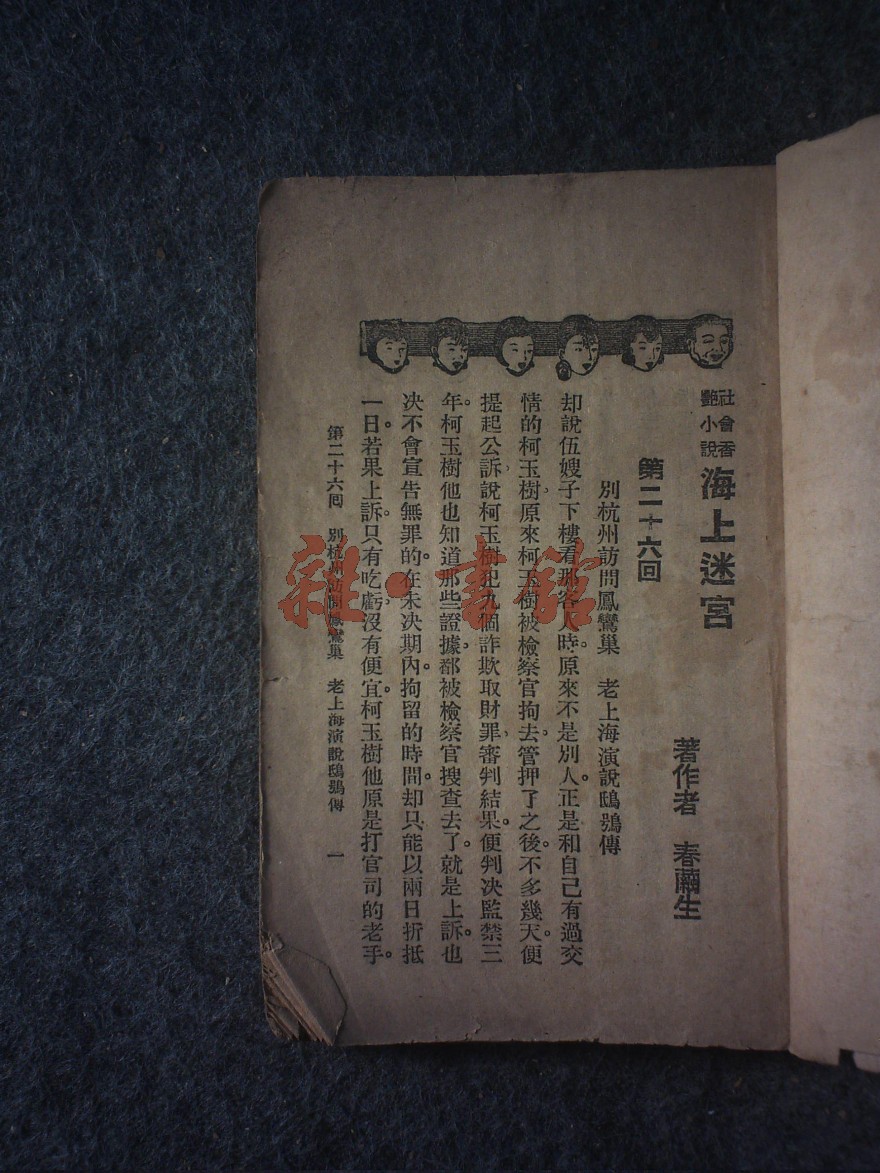 社會香艷小說
海上迷宮
著作者　春繭生
第二十六回
別杭州訪問鳳鸞巢　老上海演說鴟鴞傳
却說伍嫂子下樓看那客人時。原來不是別人。正是和自己有過交
情的柯玉樹。原來柯玉樹被檢察官拘去。管押了之後。不多幾天。便
提起公訴。說柯玉樹犯九個詐欺取財罪。審判結果。便判决監禁三
年。柯玉樹他也知道那些證據。都被檢察官搜查去了。就是上訴。也
决不會宣告無罪的。在未决期內。拘留的時間。却只能以兩日折抵
一日。若果上訴。只有吃虧。沒有便宜。柯玉樹他原是打官司的老手。
第二十六回　別杭州訪問鳳鸞巢　老上海演說鴟鴞傳　一
雜·書館